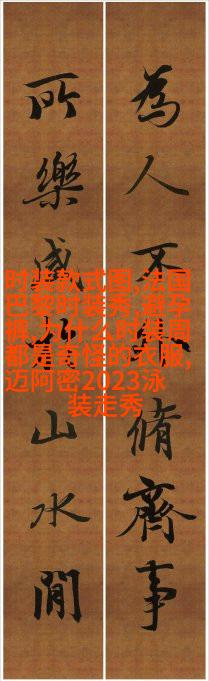 為人不脩齊事
所樂咸山水閒
时装款式图,法国
巴黎时装秀,避孕
裤,为什么时装周
都是奇怪的衣服,
迈阿密2023泳
装走秀